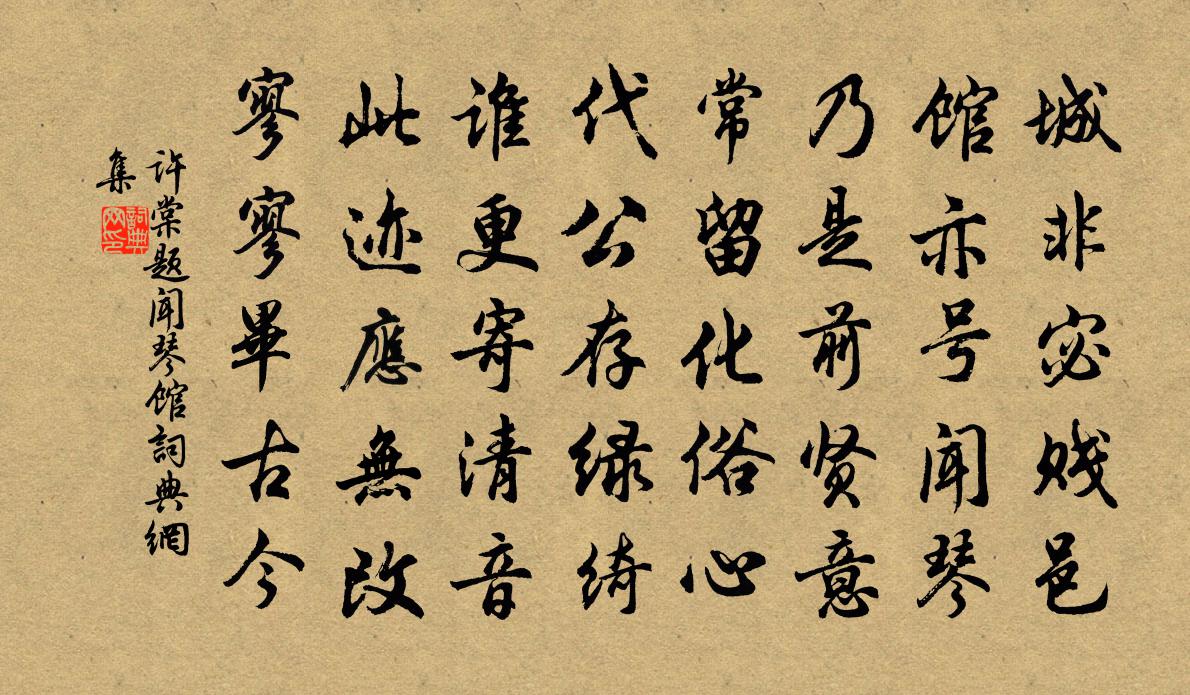 城非宓贱邑
馆亦号闻琴
乃是前贤意
常留化俗心
代公存绿绮
谁更寄清音
此迹應無改
寥寥畢古今
许棠题闻琴馆詞典網
集
詞典
网印